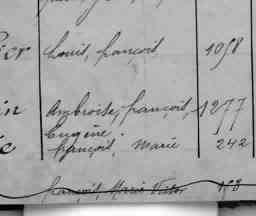 Louis, françois 1098
Ambroise, françois, 1277
Eugène.
françois, Marie 242
françois, Marie Victor 198